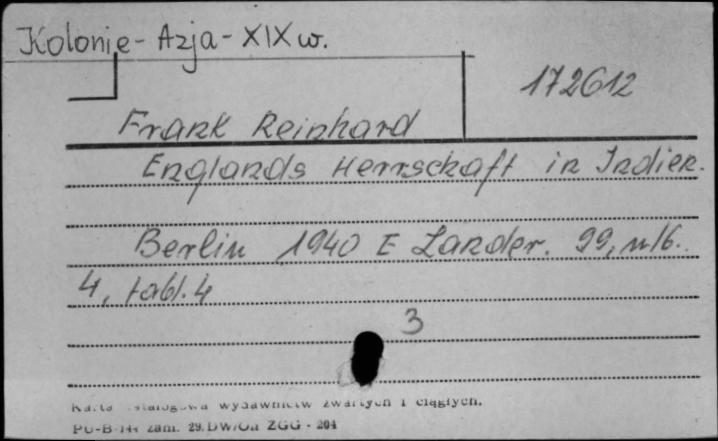 Kolonie - Azja - XIX w.
172612
Frank Reinhard
Englands Herrschaft in Indien.
Berlin 1940 E Lander. 99, nlb.
4, tabl. 4
3
Karta katalogowa wydawnictw zwartych i ciągłych.
PU-B-144 zam. 29. DW/On ZGG - 204